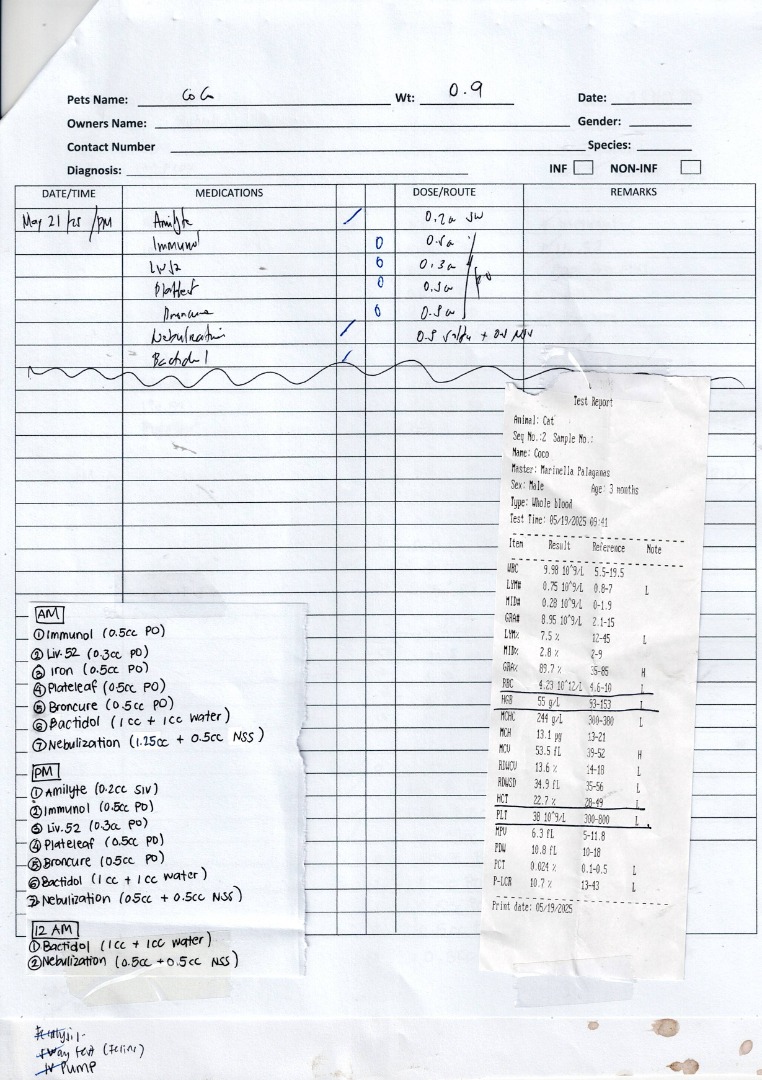 Pets Name: CoCo Wt: 0.9 Date:
Owners Name: Gender:
Contact Number Species:
Diagnosis: INF NON-INF
DATE/TIME MEDICATIONS DOSE/ROUTE REMARKS
May 21/25 /pm Amilyte 0.2cc SIV
Immunol 0.5cc
0.3cc
Plateleaf 0.5cc po
Broncure 0.5cc
Nebulization 0.5
Bactidol
Test Report
Animal: Cat
Seq No.:2 Sample No.:
Name: Coco
Master: Marinella Palaganas
Sex: Male Age: 3 months
Type: Whole blood
Test Time: 05/19/2025 09:41
Item Result Reference Note
WBC 9.98 10^9/L 5.5-19.5
LYM# 0.75 10^9/L 0.8-7 L
MID# 0.28 10^9/L 0-1.9
GRA# 8.95 10^9/L 2.1-15
LYM% 7.5 % 12-45 L
MID% 2.8 % 2-9
GRA% 89.7 % 35-85 H
RBC 4.23 10^12/L 4.6-10 L
HGB 55 g/L 93-153 L
MCHC 244 g/L 300-380 L
MCH 13.1 pg 13-21
MCV 53.5 fL 39-52 H
RDWCV 13.6 % 14-18 L
RDWSD 34.9 fL 35-56 L
HCT 22.7 % 28-49 L
PLT 38 10^9/L 300-800 L
MPV 6.3 fL 5-11.8
PDW 10.8 fL 10-18
PCT 0.024 % 0.1-0.5 L
P-LCR 10.7 % 13-43 L
Print date: 05/19/2025
AM
① Immunol (0.5cc PO)
② Liv.52 (0.3cc PO)
③ Iron (0.5cc PO)
④ Plateleaf (0.5cc PO)
⑤ Broncure (0.5cc PO)
⑥ Bactidol (1cc + 1cc water)
⑦ Nebulization (1.25cc + 0.5cc NSS)
PM
① Amilyte (0.2cc SIV)
② Immunol (0.5cc PO)
③ Liv.52 (0.3cc PO)
④ Plateleaf (0.5cc PO)
⑤ Broncure (0.5cc PO)
⑥ Bactidol (1cc + 1cc water)
⑦ Nebulization (0.5cc + 0.5cc NSS)
12 AM
① Bactidol (1cc + 1cc water)
② Nebulization (0.5cc + 0.5cc NSS)
way test (Feline)
IV PUMP